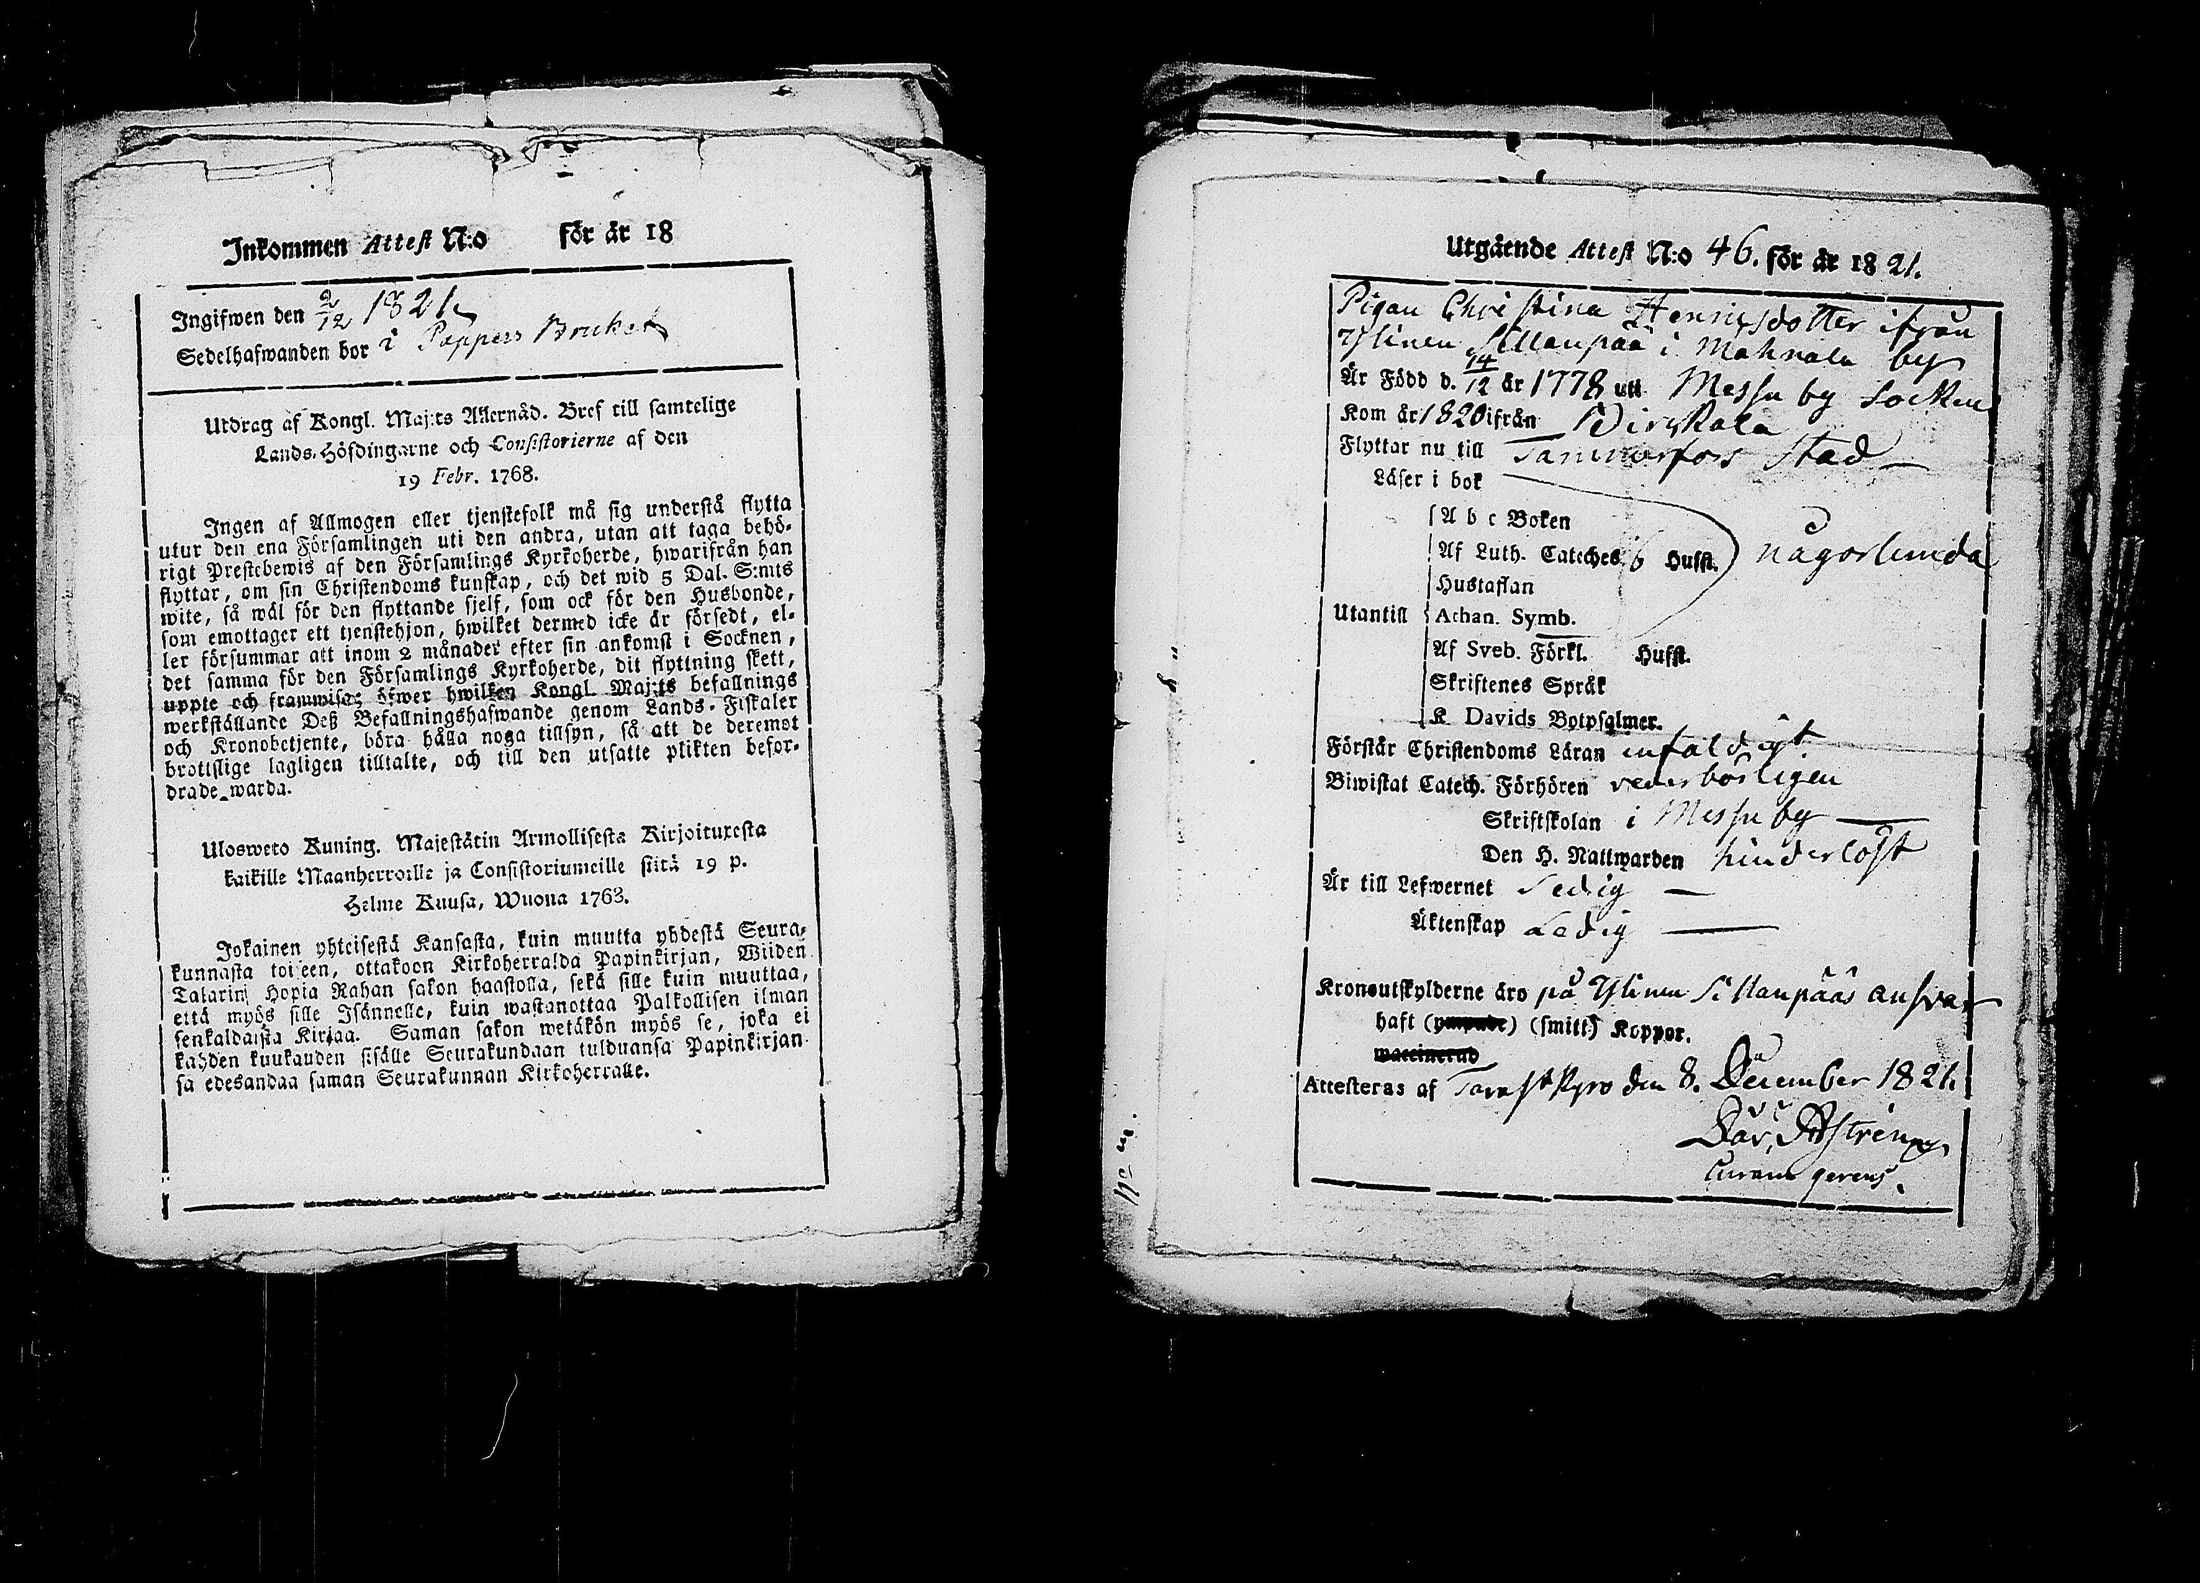 Inkommen Attest N:o för år 18
Ingifwen den 2/12 1821.
Sedelhafwanden bor i Pappers Bruket
Utdrag af Kongl. Maj:ts Allernåd. Bref till samtelige
Lands-Höfdingarne och Consistorierne af den
19 Febr. 1768.
Ingen af Allmogen eller tjenstefolk må sig understå flytta
utur den ena Församlingen uti den andra, utan att taga behö-
rigt Prestebewis af den Församlings Kyrkoherde, hwarifrån han
flyttar, om sin Christendoms kunskap, och det wid 5 Dal. S:mts
wite, så wäl för den flyttande sjelf, som ock för den Husbonde,
som emottager ett tjenstehjon, hwilket dermed icke är försedt, el-
ler försummar att inom 2 månader efter sin ankomst i Socknen,
det samma för den Församlings Kyrkoherde, dit flyttning skett,
uppte och framwisa; öfwer hwilken Kongl. Maj:ts befallnings
werkställande Deß Befallningshafwande genom Lands-Fiskaler
och Kronobetjente, böra hålla noga tillsyn, så att de deremot
brottslige lagligen tilltalte, och till den utsatte plikten befor-
drade warda.
Ulosweto Kuning. Majestätin Armollisesta Kirjoituxesta
kaikille Maanherroille ja Consistoriumeille siitä 19 p.
Helme Kuusa, Wuona 1768.
Jokainen yhteisestä Kansasta, kuin muutta yhdestä Seura-
kunnasta toiseen, ottakoon Kirkoherralda Papinkirjan, Wiiden
Talarinj Hopia Rahan sakon haastolla, sekä sille kuin muuttaa,
että myös sille Isännelle, kuin wastanottaa Palkollisen ilman
senkaldaista Kirjaa. Saman sakon wetäkön myös se, joka ei
kahden kuukauden sisälle Seurakundaan tulduansa Papinkirjan-
sa edesandaa saman Seurakunnan Kirkoherralle.
Utgående Attest N:o 46. för år 1821.
Pigan Christina Henricsdotter ifrån
Yslinen Sillanpää i Mahnala by
Är Född d. 14/12 år 1778 uti Messuby Socken
Kom år 1820 ifrån Birckala
Flyttar nu till Tammerfors Stad
Läser i bok
A b c Boken
Af Luth. Cateches 6 Hufst. någorlunda
Hustaflan
Utantill Athan. Symb.
Af Sveb. Förkl. Hufst.
Skriftenes Språk
K Davids Botpsalmer.
Förstår Christendoms Läran enfaldigt
Biwistat Catech. Förhören vederbörligen
Skriftskolan i Messuby
Den H. Nattwarden hinderlöst
Är till Lefwernet Sedig
Äktenskap Ledig
Kronoutskylderne äro på Yslinen Sillanpääs answar
haft (ympade) (smitt) Koppor.
waccinerad
Attesteras af Tavastkyro den 8. December 1821.
Curam gerens.